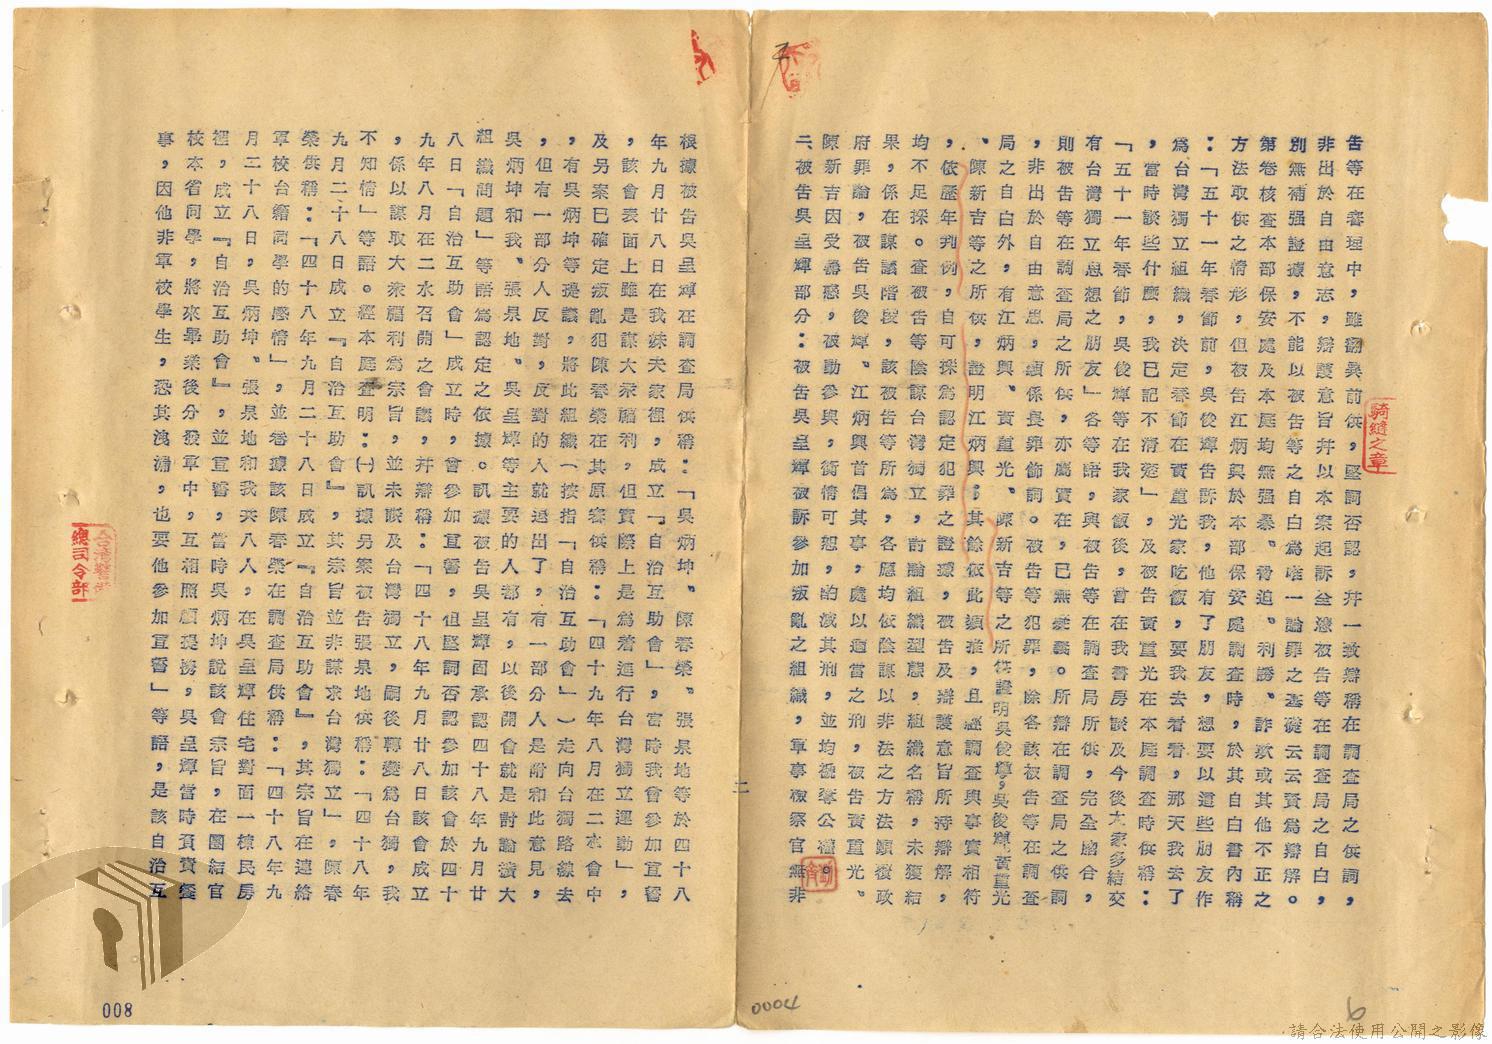 告等在審理中，雖翻異前供，堅詞否認，并一致辯稱在調查局之供詞，
非出於自由意志，辯護意旨并以本案起訴全憑被告等在調查局之自白，
別無補强證據，不能以被告等之自白為唯一論罪之基礎云云資為辯解。
第卷核查本部保安處及本庭均無强暴、脅迫、利誘、詐欺或其他不正之
方法取供之情形，但被告江炳興於本部保安處調查時，於其自白書內稱
：「五十一年春節前，吳俊輝告訴我，他有了朋友，想要以這些朋友作
為台灣獨立組織，決定春節在黃重光家吃飯，要我去看看，那天我去了
，當時談些什麼，我已記不清楚」，及被告黃重光在本庭調查時供稱：
「五十一年春節，吳俊輝等在我家飯後，曾在我書房談及今後大家多結交
有台灣獨立思想之朋友」各等語，與被告等在調查局所供，完全脗合，
則被告等在調查局之所供，亦屬實在，已無疑義。所辯在調查局之供詞
，非出於自由意思，顯係畏罪飾詞。被告等犯罪，除各該被告等在調查
局之自白外，有江炳興、黃重光、陳新吉等之所供證明吳俊輝，吳俊輝黃重光
、陳新吉等之所供，證明江炳興；其餘依此類推，且經調查與事實相符
，依歷年判例，自可採為認定犯罪之證據，被告及辯護意旨所持辯解，
均不足採。查被告等陰謀台灣獨立，討論組織型態，組織名稱，未獲結
果，係在謀議階段，該被告等所為，各應均依陰謀以非法之方法顛覆政
府罪論，被告吳俊輝、江炳興首倡其事，處以適當之刑，被告黃重光、
陳新吉因受蠱惑，被動參與，衡情可恕，酌減其刑，並均褫奪公權。
二、被告吳呈輝部分：被告吳呈輝被訴參加叛亂之組織，軍事檢察官無非
二
根據被告吳呈輝在調查局供稱：「吳炳坤、陳春榮、張泉地等於四十八
年九月廿八日在我妹夫家裡，成立「自治互助會」，當時我會參加宣誓
，該會表面上雖是謀大衆福利，但實際上是為着進行台灣獨立運動」，
及另案已確定叛亂犯陳春榮在其原審供稱：「四十九年八月在二水會中
，有吳炳坤等提議，將此組織（按指「自治互助會」）走向台獨路線去
，但有一部分人反對，反對的人就退出了，有一部分人是附和此意見，
吳炳坤和我、張泉地、吳呈輝等主要的人都有，以後開會就是討論擴大
組織問題」等語為認定之依據。訊據被告吳呈輝固承認四十八年九月廿
八日「自治互助會」成立時，曾參加宣誓，但堅詞否認參加該會於四十
九年八月在二水召開之會議，并辯稱：「四十八年九月廿八日該會成立
，係以謀取大衆福利為宗旨，並未談及台灣獨立，嗣後轉變為台獨，我
不知情」等語。經本庭查明：㈠訊據另案被告張泉地供稱：「四十八年
九月二十八日成立『自治互助會』，其宗旨並非謀求台灣獨立」，陳春
榮供稱：「四十八年九月二十八日成立『自治互助會』，其宗旨在連絡
軍校台籍同學的感情」，並卷據該陳春榮在調查局供稱：「四十八年九
月二十八日，吳炳坤、張泉地和我共八人，在吳呈輝住宅對面一棟民房
裡，成立『自治互助會』，並宣誓，當時吳炳坤說該會宗旨，在團結官
校本省同學，將來畢業後分發軍中，互相照顧提携，吳呈輝當時負責餐
事，因他非軍校學生，恐其洩漏，也要他參加宣誓」等語，是該自治互
騎縫之章
台灣警備
總司令部
008
0004
6
請合法使用公開之影像